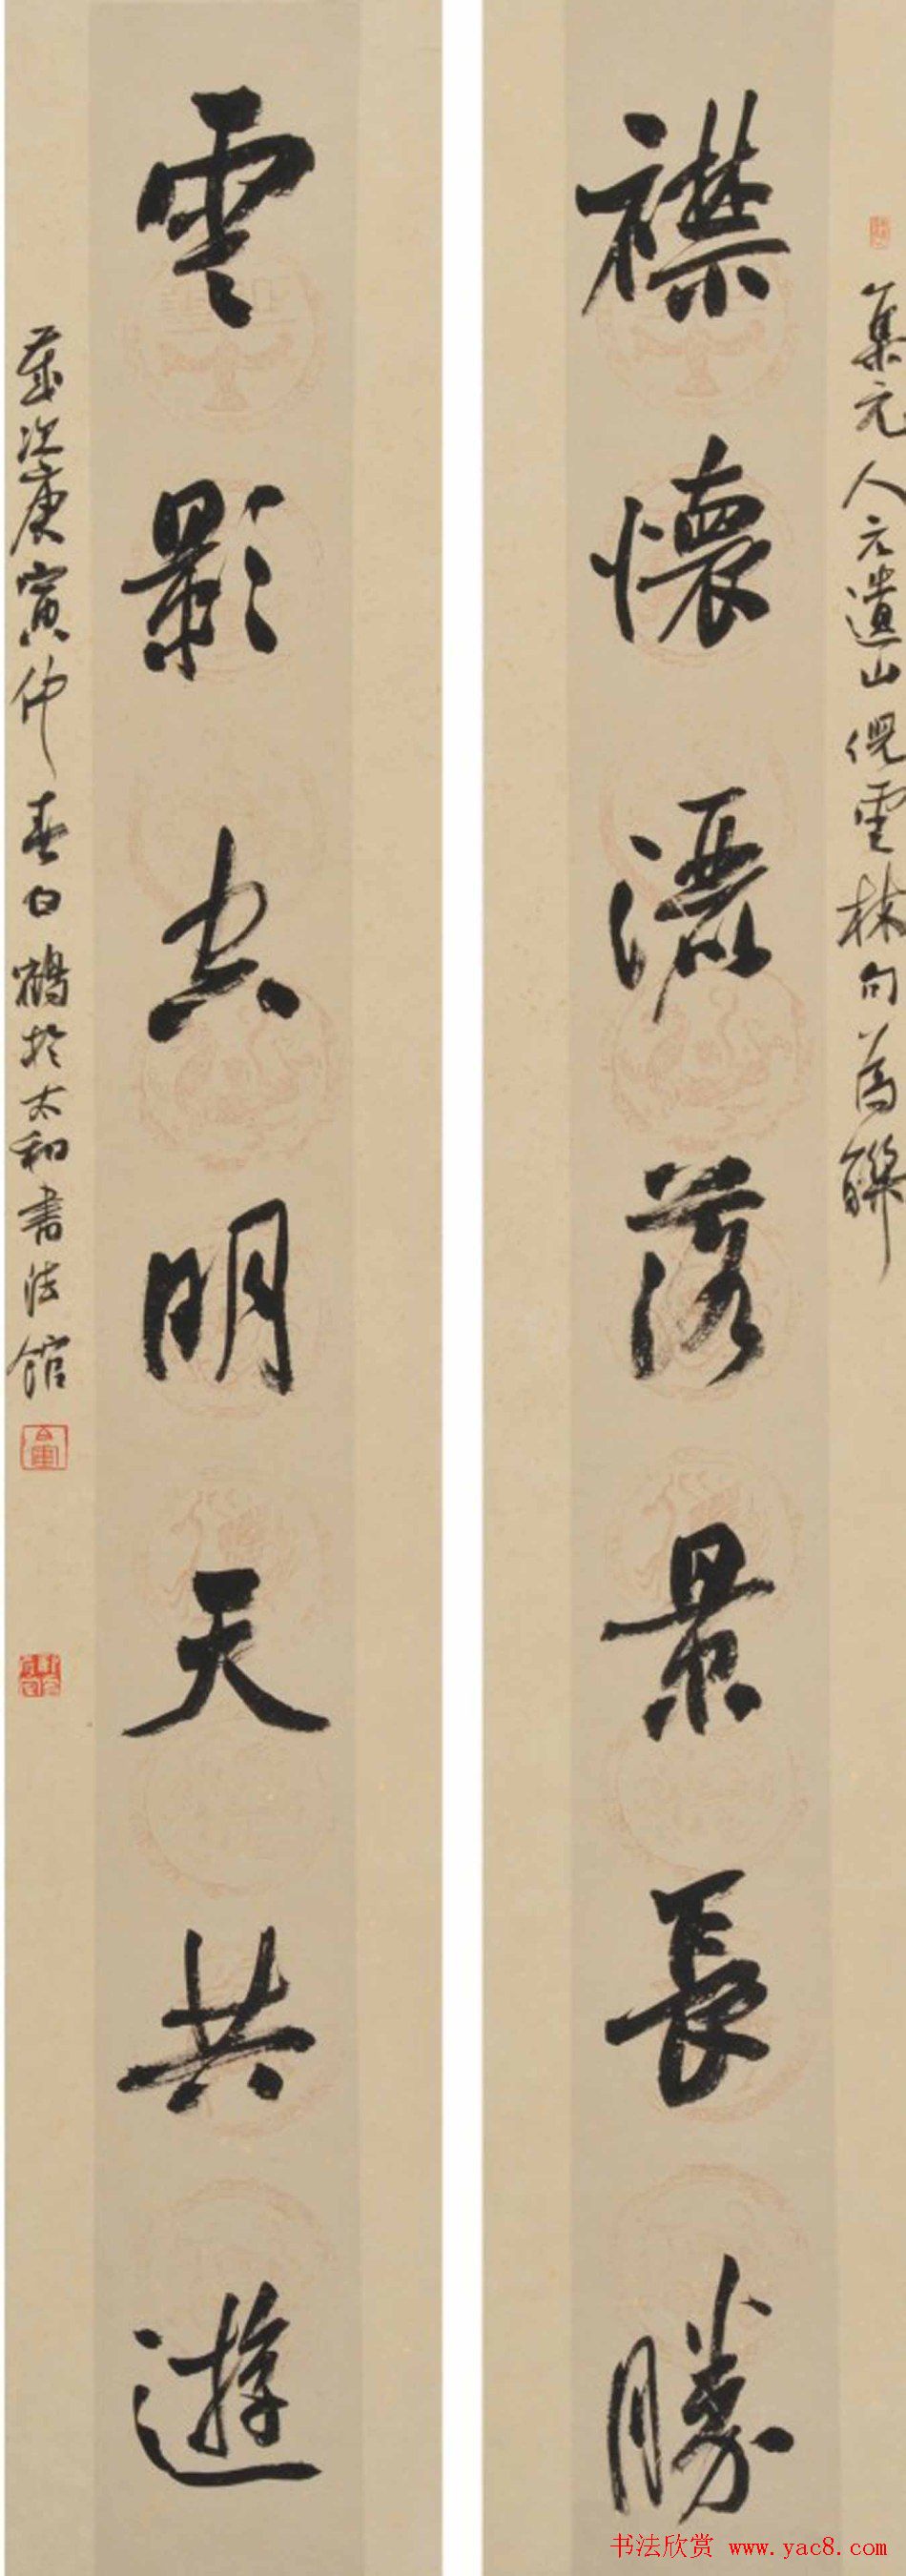 集元人元遺山倪雲林句為聯
襟懷灑落景長勝
雲影空明天共遊
歲次庚寅仲春白鶴於太和書法館
书法欣赏 www.yac8.com